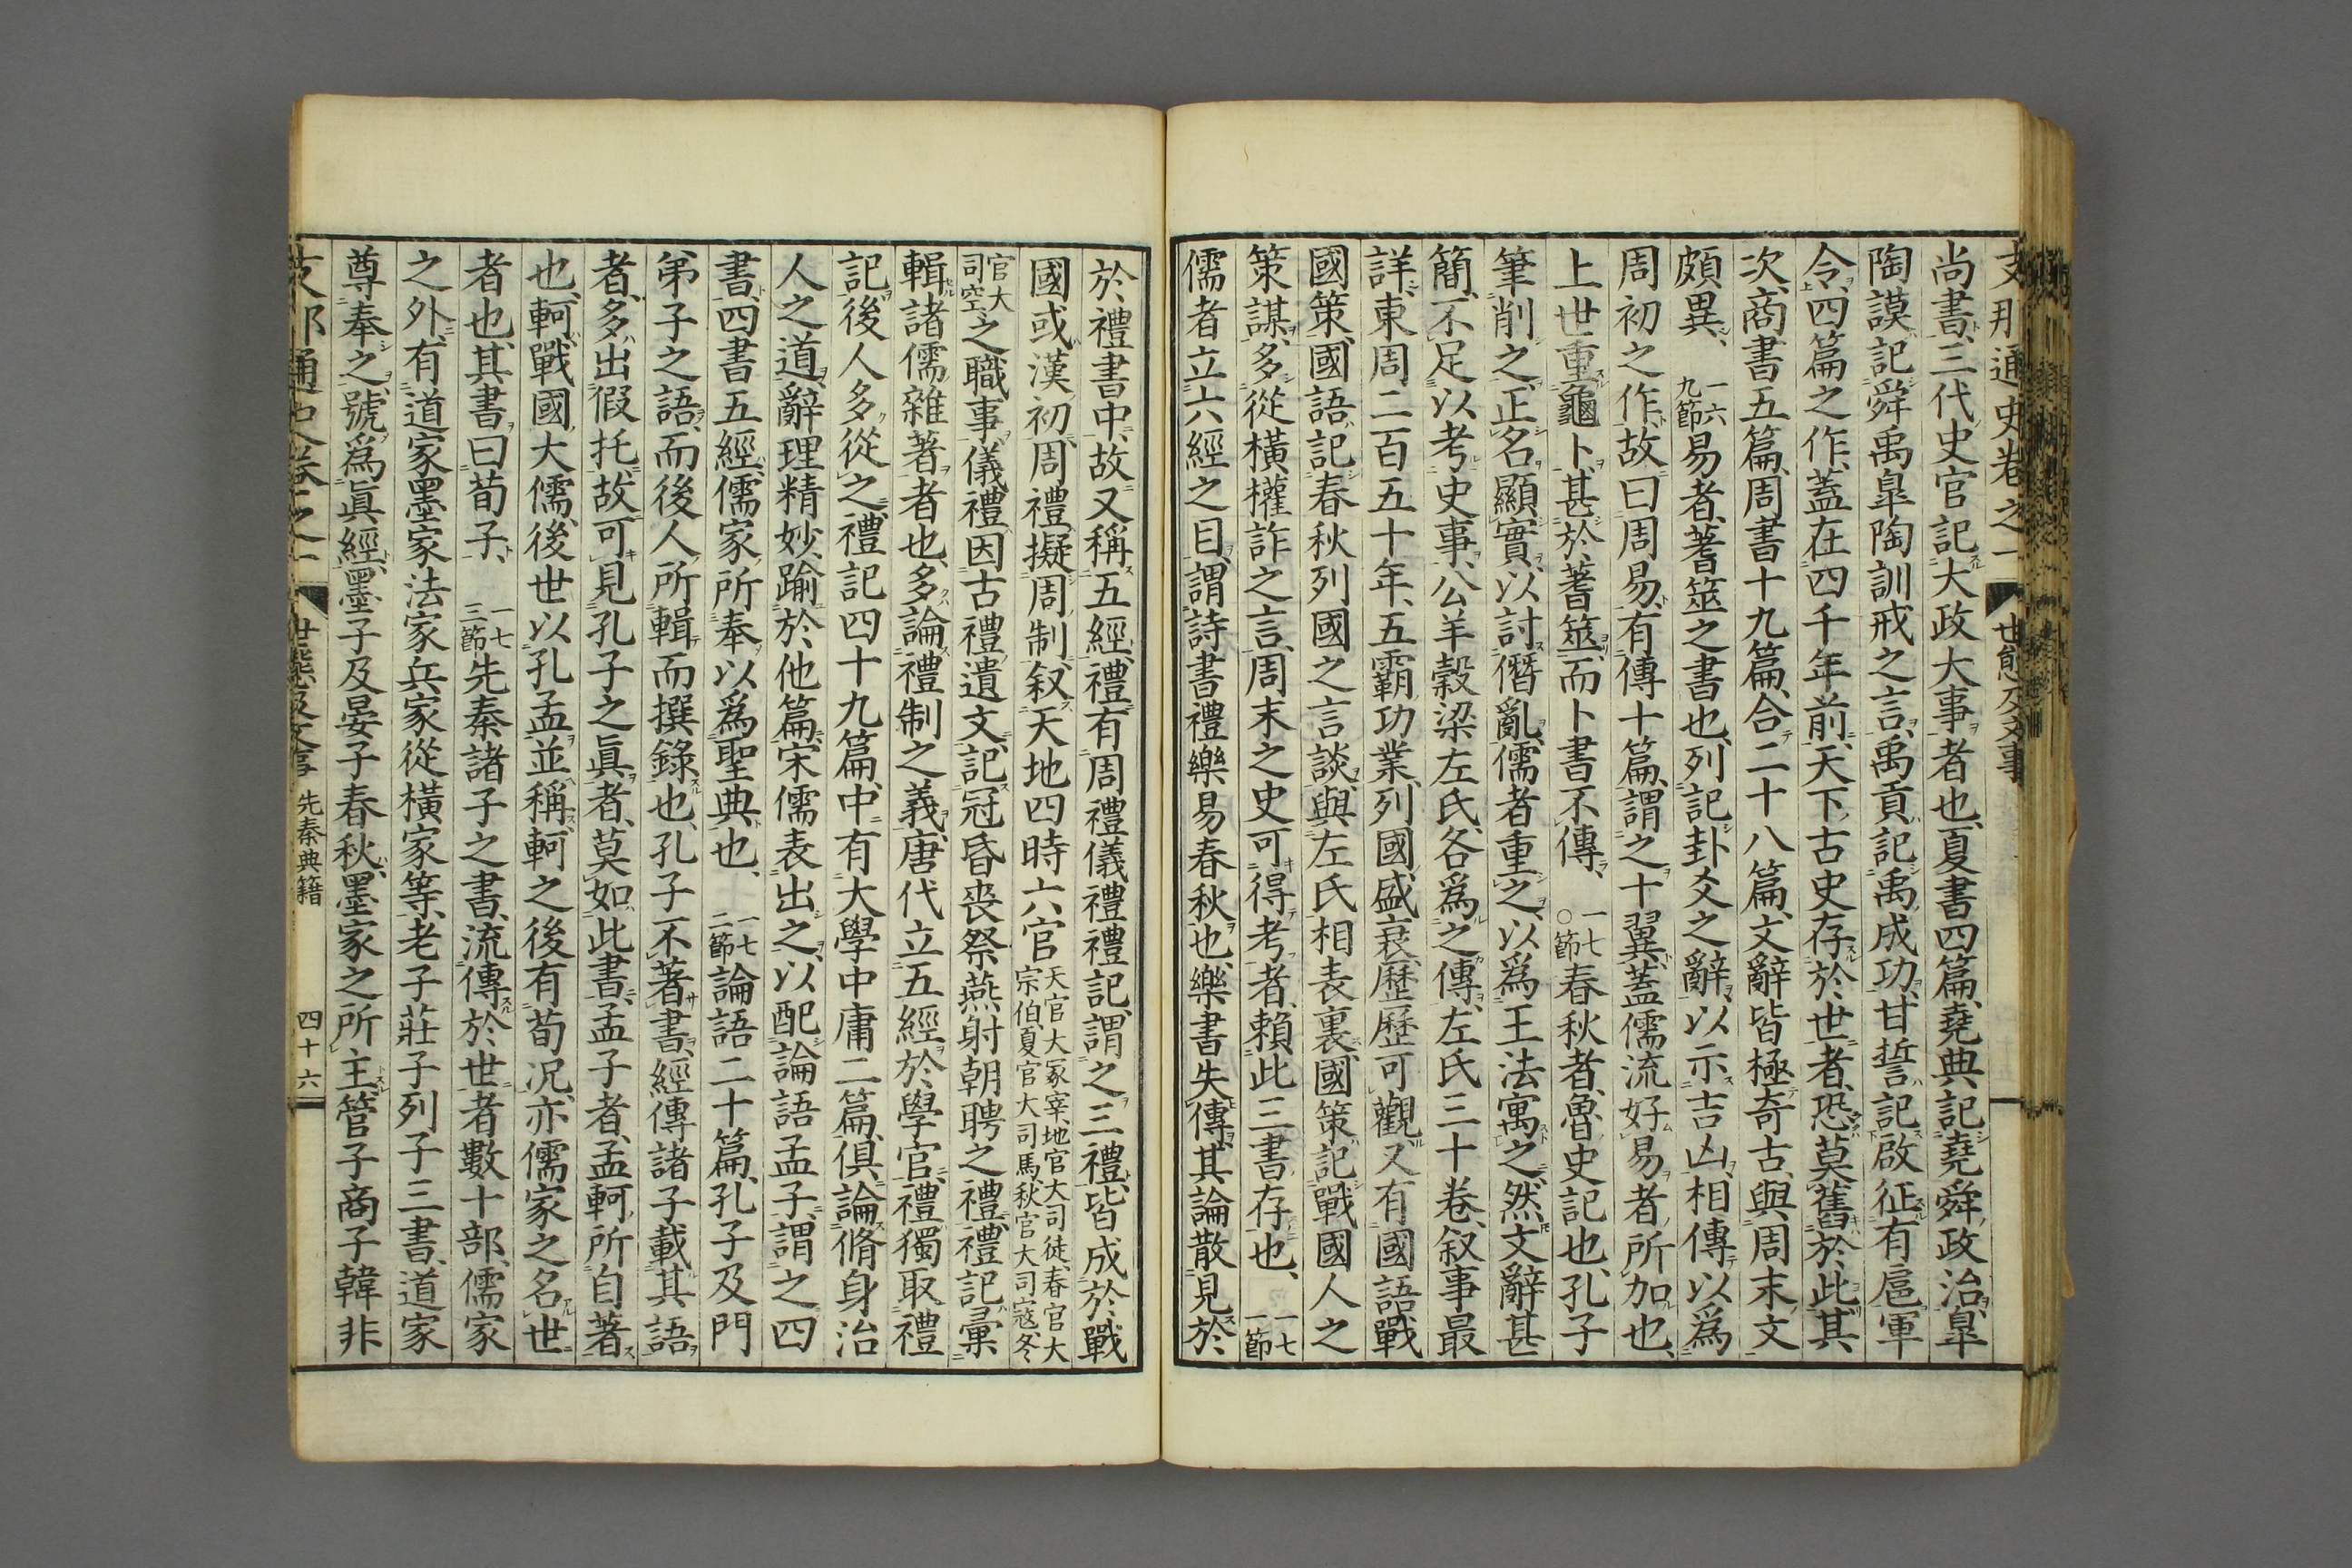 支那通史卷之一 世態及文事
尚書、三代史官記大政大事者也、夏書四篇、堯典記堯舜政治、皐
陶謨記舜禹皐陶訓戒之言、禹貢記禹成功、甘誓記啟征有扈軍
令、四篇之作、蓋在四千年前、天下古史存於世者、恐莫舊於此、其
次商書五篇、周書十九篇、合二十八篇、文辭皆極奇古、與周末文
頗異、 一六九節 易者、蓍筮之書也、列記卦爻之辭、以示吉凶、相傳以爲
周初之作、故曰周易、有傳十篇、謂之十翼、蓋儒流好易者所加也、
上世重龜卜、甚於蓍筮、而卜書不傳、 一七〇節 春秋者、魯史記也、孔子
筆削之、正名顯實、以討僭亂、儒者重之、以爲王法寓之、然文辭甚
簡、不足以考史事、公羊穀梁左氏、各爲之傳、左氏三十卷、叙事最
詳、東周二百五十年、五霸功業、列國盛衰、歷歷可觀、又有國語戰
國策、國語記春秋列國之言談、與左氏相表裏、國策記戰國人之
策謀、多從橫權詐之言、周末之史可得考者、賴此三書存也、 一七一節
儒者立六經之目、謂詩書禮樂易春秋也、樂書失傳、其論散見於
於禮書中、故又稱五經、禮有周禮儀禮禮記、謂之三禮、皆成於戰
國或漢初、周禮擬周制、叙天地四時六官 天官大冢宰、地官大司徒、春官大宗伯、夏官大司馬、秋官大司寇、冬
官大司空 之職事、儀禮因古禮遺文、記冠昏喪祭燕射朝聘之禮、禮記彙
輯諸儒雜著者也、多論禮制之義、唐代立五經於學官、禮獨取禮
記、後人多從之、禮記四十九篇、中有大學中庸二篇、俱論脩身治
人之道、辭理精妙、踰於他篇、宋儒表出之、以配論語孟子、謂之四
書、四書五經、儒家所奉以爲聖典也、 一七二節 論語二十篇、孔子及門
弟子之語、而後人所輯而撰錄也、孔子不著書、經傳諸子載其語
者、多出假托、故可見孔子之眞者、莫如此書、孟子者、孟軻所自著
也、軻戰國大儒、後世以孔孟並稱、軻之後有荀況、亦儒家之名世
者也、其書曰荀子、 一七三節 先秦諸子之書、流傳於世者數十部、儒家
之外、有道家墨家法家兵家從橫家等、老子莊子列子三書、道家
尊奉之、號爲眞經、墨子及晏子春秋、墨家之所主、管子商子韓非
支那通史卷之一 世態及文事 先秦典籍 四十六